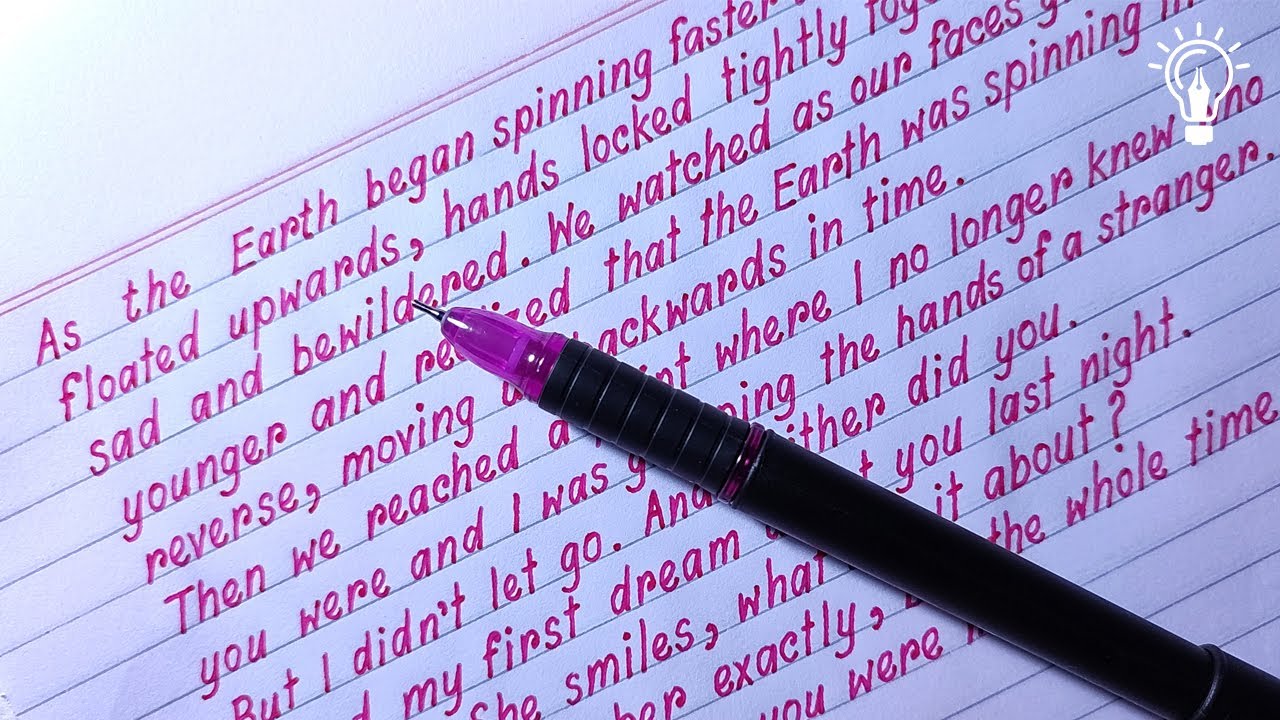 As the Earth began spinning faster
floated upwards, hands locked tightly
sad and bewildered. We watched as our faces
younger and that the Earth was spinning
reverse, moving backwards in time.
Then we reached a where I no longer knew
you were and I was the hands of a stranger.
But I didn't let go. And did you.
my first dream you last night.
She smiles, it about?
exactly, the whole time
you were